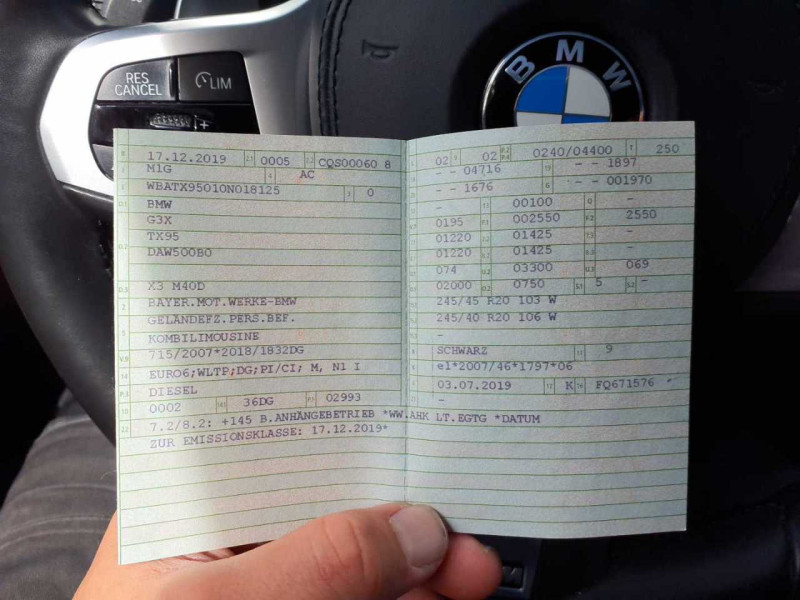 RES
CANCEL
LIM
+
BMW
17.12.2019 0005 CQS00060 8
M1G AC
WBATX95010N018125 0
BMW
G3X
TX95
DAW500B0
X3 M40D
BAYER.MOT.WERKE-BMW
GELÄNDEFZ.PERS.BEF.
KOMBILIMOUSINE
715/2007*2018/1832DG
EURO6;WLTP;DG;PI/CI; M, N1 I
DIESEL
0002 36DG 02993
7.2/8.2: +145 B.ANHÄNGEBETRIEB *WW.AHK LT.EGTG *DATUM
ZUR EMISSIONSKLASSE: 17.12.2019*
02 02 0240/04400 250
- - 04716 - - 1897
- - 1676 - - 001970
- 00100 -
0195 002550 2550
01220 01425 -
01220 01425 -
074 03300 069
02000 0750 5 -
245/45 R20 103 W
245/40 R20 106 W
-
SCHWARZ 9
e1*2007/46*1797*06
03.07.2019 K FQ671576 *
-